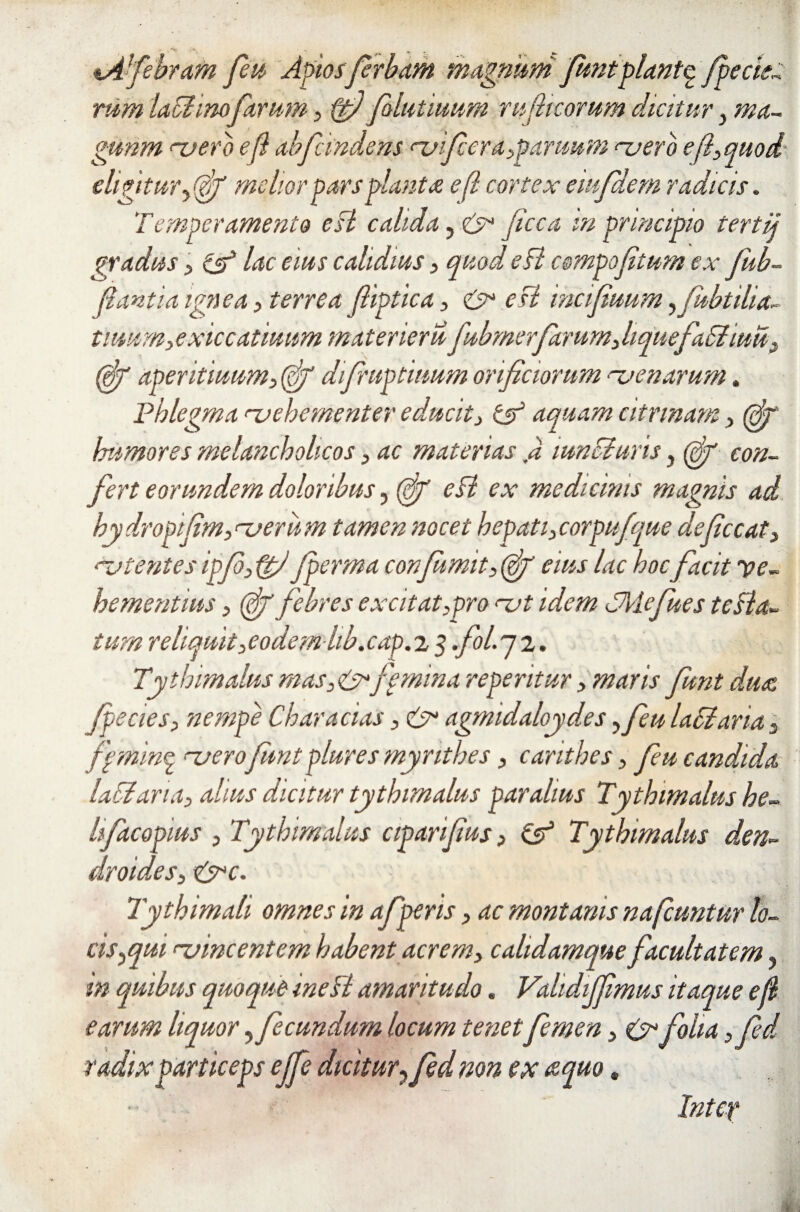 Alſebram ſeu Apios ſerbam magnum ſunt plantę ſpecie-
rum lactinoſarum, & ſolutiuum ruſticorum dicitur, ma-
gunm vero eſt abſcindens viſcera, paruum vero eſt, quod
eligitur, & melior pars plantæ eſt cortex eiuſdem radicis.
Temperamento est calida, & ſicca in principio tertij
gradus, & lac eius calidius, quod est compoſitum ex ſub-
ſtantia ignea, terrea ſtiptica, & est inciſiuum, ſubtilia-
tiuum, exiccatiuum materierū ſubmerſarum, liquefactiuū,
& aperitiuum, & diſruptiuum orificiorum venarum.
Phlegma vehementer educit, & aquam citrinam, &
humores melancholicos, ac materias à iuncturis, & con-
fert eorundem doloribus, & est ex medicinis magnis ad
hydropiſim, verùm tamen nocet hepati, corpuſque deſiccat,
vtentes ipſo, & ſperma conſumit, & eius lac hoc facit ve-
hementius, & febres excitat, pro vt idem Meſues testa-
tum reliquit, eodem lib. cap. 23. fol. 72.
Tythimalus mas, & fęmina reperitur, maris ſunt duæ
ſpecies, nempè Characias, & agmidaloydes, ſeu lactaria,
fęminę vero ſunt plures myrithes, carithes, ſeu candida
lactaria, alius dicitur tythimalus paralius Tythimalus he-
liſacopius, Tythimalus ciparißus, & Tythimalus den-
droides, &c.
Tythimali omnes in aſperis, ac montanis naſcuntur lo-
cis, qui vincentem habent acrem, calidamque facultatem,
in quibus quoque inest amaritudo. Validiſſimus itaque eſt
earum liquor, ſecundum locum tenet ſemen, & folia, ſed
radix particeps eſſe dicitur, ſed non ex æquo.
Inter